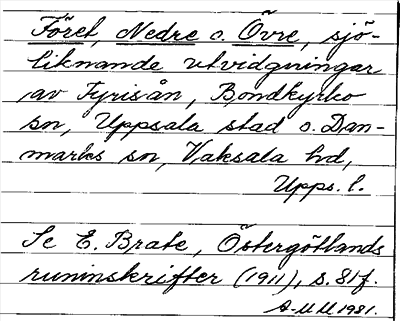 Föret, Nedre o. Övre, sjö-
liknande utvidgningar
av Fyrisån, Bondkyrko
sn, Uppsala stad o. Dan-
marks sn, Vaksala hd,
Upps. l.
Se E. Brate, Östergötlands
runinskrifter (1911), s. 81f.
A-M M 1981.